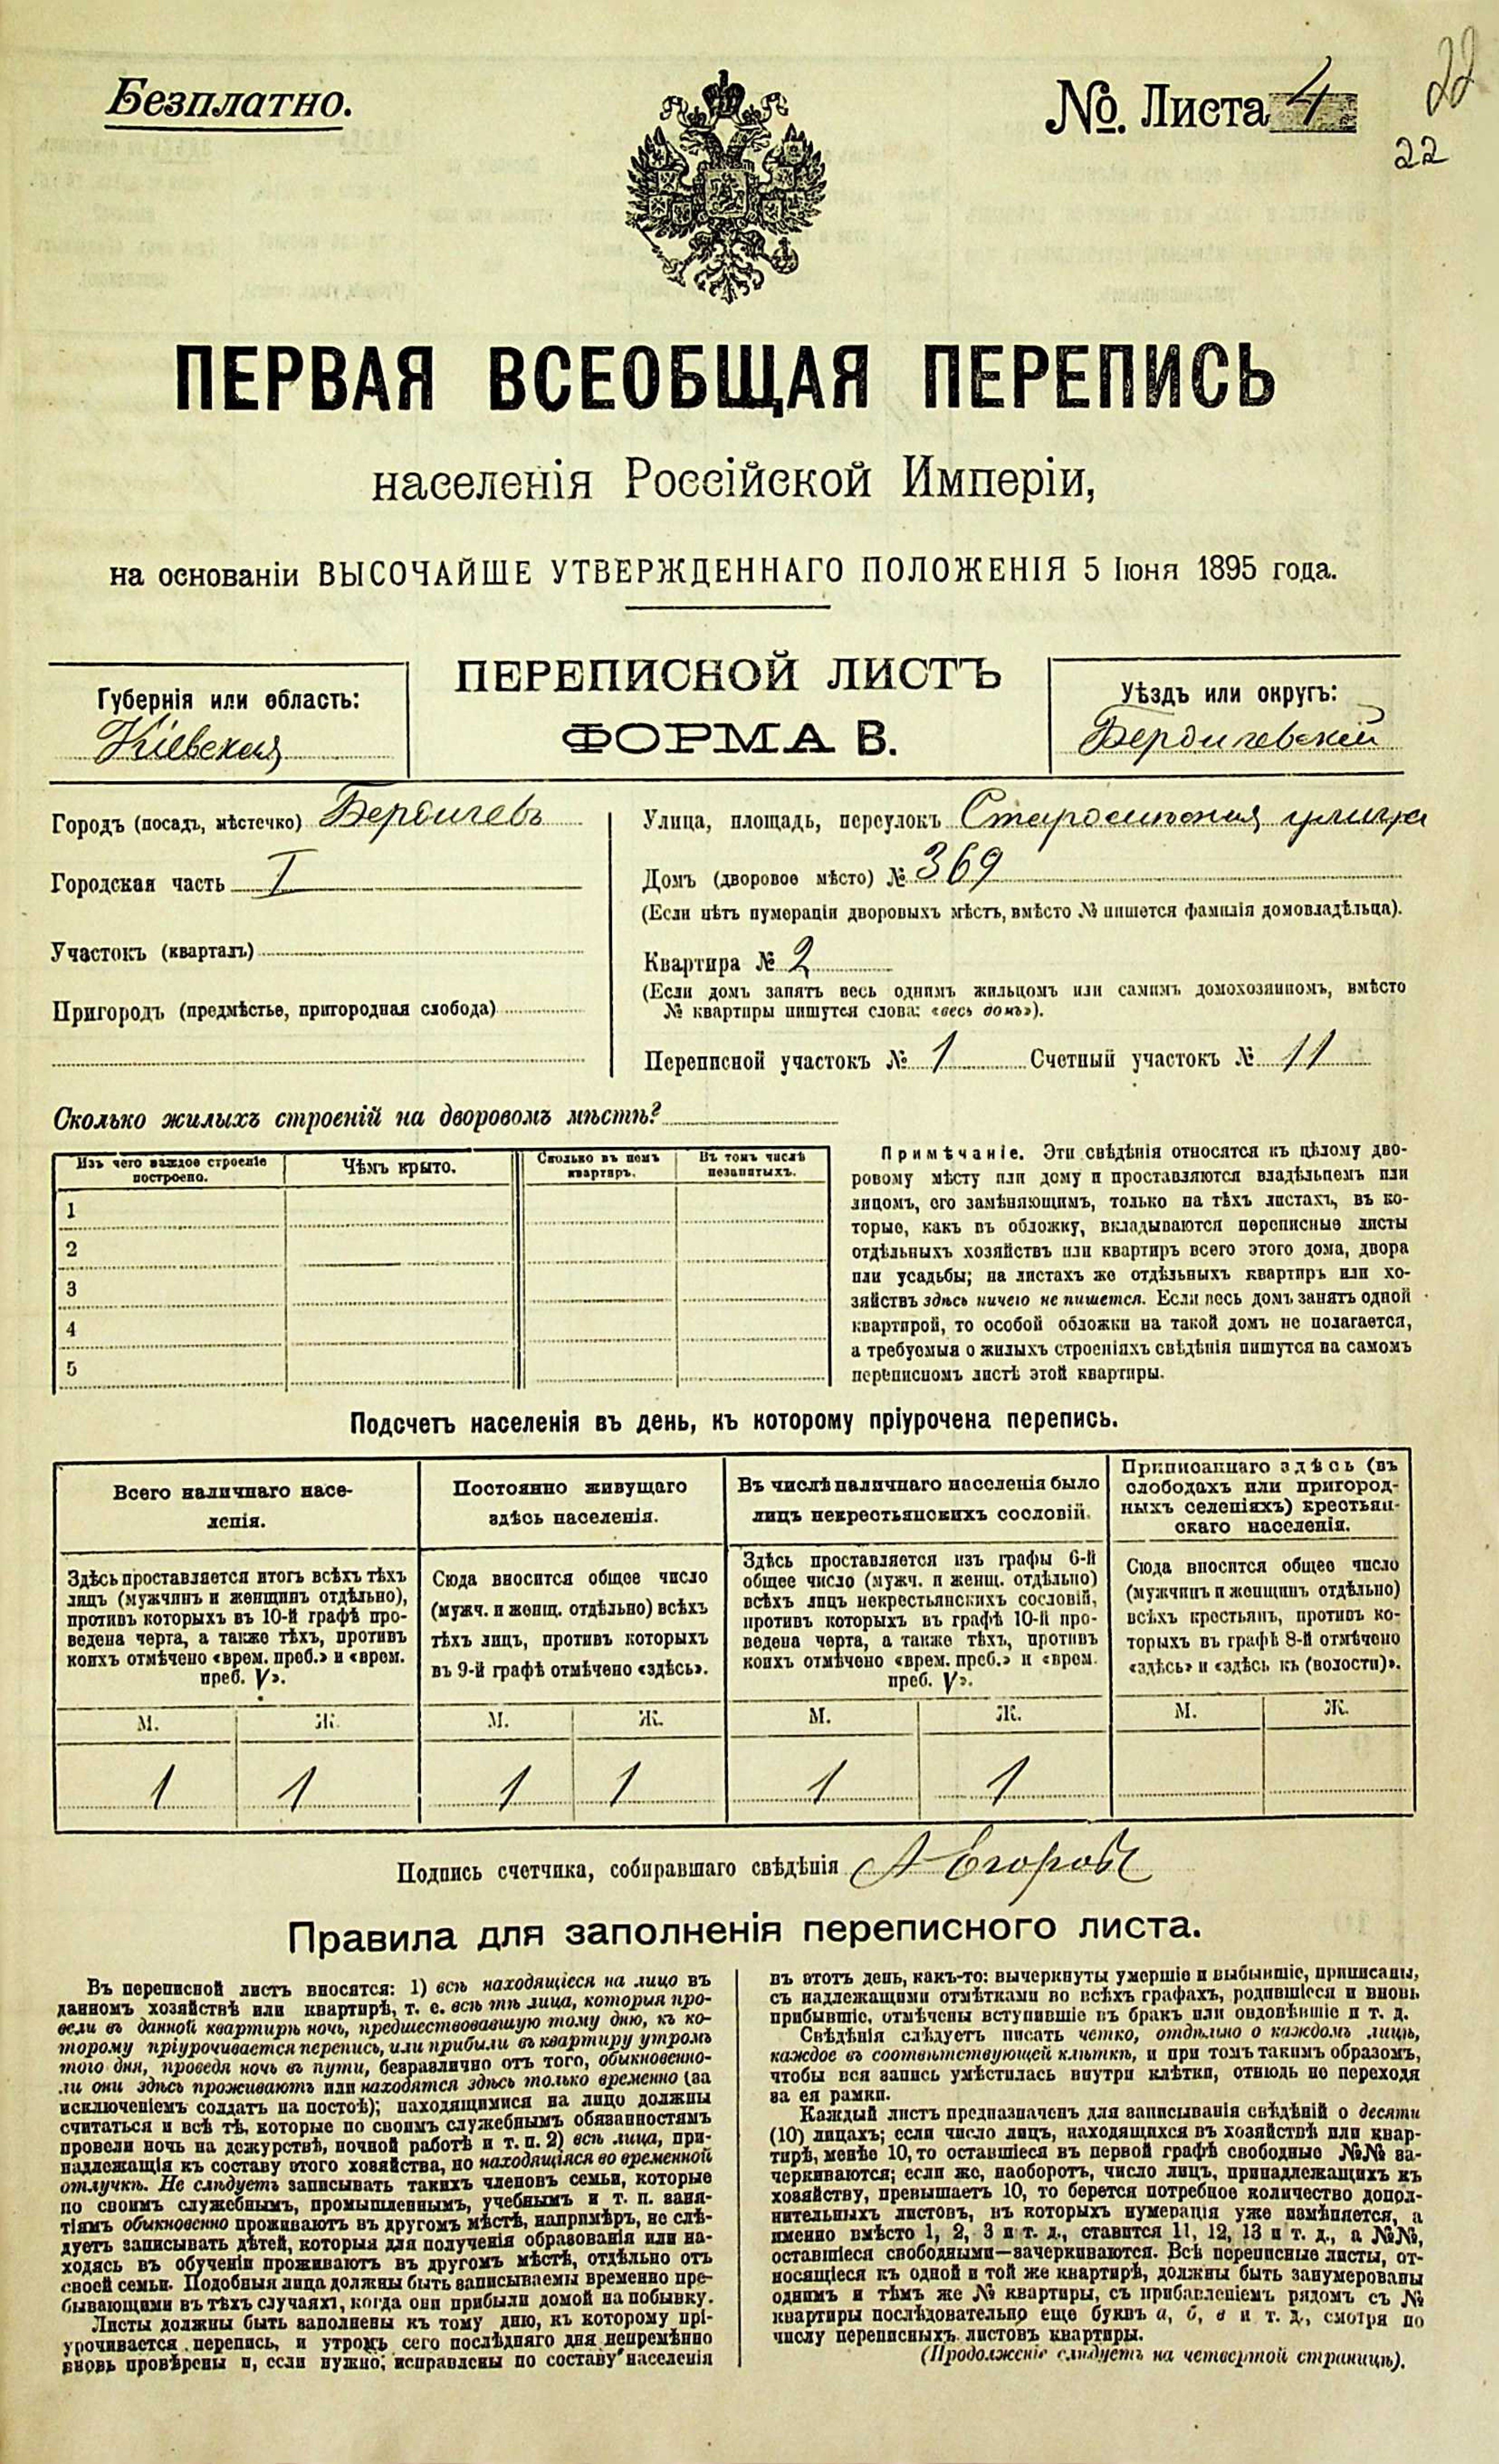 Безплатно.
№. Листа 4
22
22
ПЕРВАЯ ВСЕОБЩАЯ ПЕРЕПИСЬ
населенія Россійской Имперіи,
на основаніи ВЫСОЧАЙШЕ УТВЕРЖДЕННАГО ПОЛОЖЕНІЯ 5 Іюня 1895 года.
Губернія или область:
Кіевская
ПЕРЕПИСНОЙ ЛИСТЪ
ФОРМА В.
Уѣздъ или округъ:
Бердичевскій
Городъ (посадъ, мѣстечко) Бердичевъ
Городская часть I
Участокъ (кварталъ)
Пригородъ (предмѣстье, пригородная слобода)
Улица, площадь, переулокъ улица
Домъ (дворовое мѣсто) № 369
(Если нѣтъ нумераціи дворовыхъ мѣстъ, вмѣсто № пишется фамилія домовладѣльца).
Квартира № 2
(Если домъ занятъ весь однимъ жильцомъ или самимъ домохозяиномъ, вмѣсто
№ квартиры пишутся слова: «весь домъ»).
Переписной участокъ № 1 Счетный участокъ № 11
Сколько жилыхъ строеній на дворовомъ мѣстѣ?
Изъ чего каждое строеніе
построено.
Чѣмъ крыто.
Сколько въ немъ
квартиръ.
Въ томъ числѣ
незанятыхъ.
1
2
3
4
5
Примѣчаніе. Эти свѣдѣнія относятся къ цѣлому дво-
ровому мѣсту или дому и проставляются владѣльцемъ или
лицомъ, его замѣняющимъ, только на тѣхъ листахъ, въ ко-
торые, какъ въ обложку, вкладываются переписные листы
отдѣльныхъ хозяйствъ или квартиръ всего этого дома, двора
или усадьбы; на листахъ же отдѣльныхъ квартиръ или хо-
зяйствъ здѣсь ничего не пишется. Если весь домъ занятъ одной
квартирой, то особой обложки на такой домъ не полагается,
а требуемыя о жилыхъ строеніяхъ свѣдѣнія пишутся на самомъ
переписномъ листѣ этой квартиры.
Подсчетъ населенія въ день, къ которому пріурочена перепись.
Всего наличнаго насе-
ленія.
Постоянно живущаго
здѣсь населенія.
Въ числѣ наличнаго населенія было
лицъ некрестьянскихъ сословій.
Приписаннаго здѣсь (въ
слободахъ или пригород-
ныхъ селеніяхъ) крестьян-
скаго населенія.
Здѣсь проставляется итогъ всѣхъ тѣхъ
лицъ (мужчинъ и женщинъ отдѣльно),
противъ которыхъ въ 10-й графѣ про-
ведена черта, а также тѣхъ, противъ
коихъ отмѣчено «врем. преб.» и «врем.
преб. V».
Сюда вносится общее число
(мужч. и женщ. отдѣльно) всѣхъ
тѣхъ лицъ, противъ которыхъ
въ 9-й графѣ отмѣчено «здѣсь».
Здѣсь проставляется изъ графы 6-й
общее число (мужч. и женщ. отдѣльно)
всѣхъ лицъ некрестьянскихъ сословій,
противъ которыхъ въ графѣ 10-й про-
ведена черта, а также тѣхъ, противъ
коихъ отмѣчено «врем. преб.» и «врем.
преб. V».
Сюда вносится общее число
(мужчинъ и женщинъ отдѣльно)
всѣхъ крестьянъ, противъ ко-
торыхъ въ графѣ 8-й отмѣчено
«здѣсь» и «здѣсь къ (волости)».
М. Ж. М. Ж. М. Ж. М. Ж.
1 1 1 1 1 1
Подпись счетчика, собиравшаго свѣдѣнія А Егоровъ
Правила для заполненія переписного листа.
Въ переписной листъ вносятся: 1) всѣ находящіеся на лицо въ
данномъ хозяйствѣ или квартирѣ, т. е. всѣ тѣ лица, которыя про-
вели въ данной квартирѣ ночь, предшествовавшую тому дню, къ ко-
торому пріурочивается перепись, или прибыли въ квартиру утромъ
того дня, проведя ночь въ пути, безразлично отъ того, обыкновенно-
ли они здѣсь проживаютъ или находятся здѣсь только временно (за
исключеніемъ солдатъ на постоѣ); находящимися на лицо должны
считаться и всѣ тѣ, которые по своимъ служебнымъ обязанностямъ
провели ночь на дежурствѣ, ночной работѣ и т. п. 2) всѣ лица, при-
надлежащія къ составу этого хозяйства, но находящіяся во временной
отлучкѣ. Не слѣдуетъ записывать такихъ членовъ семьи, которые
по своимъ служебнымъ, промышленнымъ, учебнымъ и т. п. заня-
тіямъ обыкновенно проживаютъ въ другомъ мѣстѣ, напримѣръ, не слѣ-
дуетъ записывать дѣтей, которыя для полученія образованія или на-
ходясь въ обученіи проживаютъ въ другомъ мѣстѣ, отдѣльно отъ
своей семьи. Подобныя лица должны быть записываемы временно пре-
бывающими въ тѣхъ случаяхъ, когда они прибыли домой на побывку.
Листы должны быть заполнены къ тому дню, къ которому прі-
урочивается перепись, и утромъ сего послѣдняго дня непремѣнно
вновь провѣрены и, если нужно, исправлены по составу населенія
въ этотъ день, какъ-то: вычеркнуты умершіе и выбывшіе, приписаны,
съ надлежащими отмѣтками во всѣхъ графахъ, родившіеся и вновь
прибывшіе, отмѣчены вступившіе въ бракъ или овдовѣвшіе и т. д.
Свѣдѣнія слѣдуетъ писать четко, отдѣльно о каждомъ лицѣ,
каждое въ соотвѣтствующей клѣткѣ, и при томъ такимъ образомъ,
чтобы вся запись умѣстилась внутри клѣтки, отнюдь не переходя
за ея рамки.
Каждый листъ предназначенъ для записыванія свѣдѣній о десяти
(10) лицахъ; если число лицъ, находящихся въ хозяйствѣ или квар-
тирѣ, менѣе 10, то оставшіеся въ первой графѣ свободные №№ за-
черкиваются; если же, наоборотъ, число лицъ, принадлежащихъ къ
хозяйству, превышаетъ 10, то берется потребное количество допол-
нительныхъ листовъ, въ которыхъ нумерація уже измѣняется, а
именно вмѣсто 1, 2, 3 и т. д., ставится 11, 12, 13 и т. д., а №№,
оставшіеся свободными—зачеркиваются. Всѣ переписные листы, от-
носящіеся къ одной и той же квартирѣ, должны быть занумерованы
однимъ и тѣмъ же № квартиры, съ прибавленіемъ рядомъ съ №
квартиры послѣдовательно еще буквъ а, б, в и т. д., смотря по
числу переписныхъ листовъ квартиры.
(Продолженіе слѣдуетъ на четвертой страницѣ).